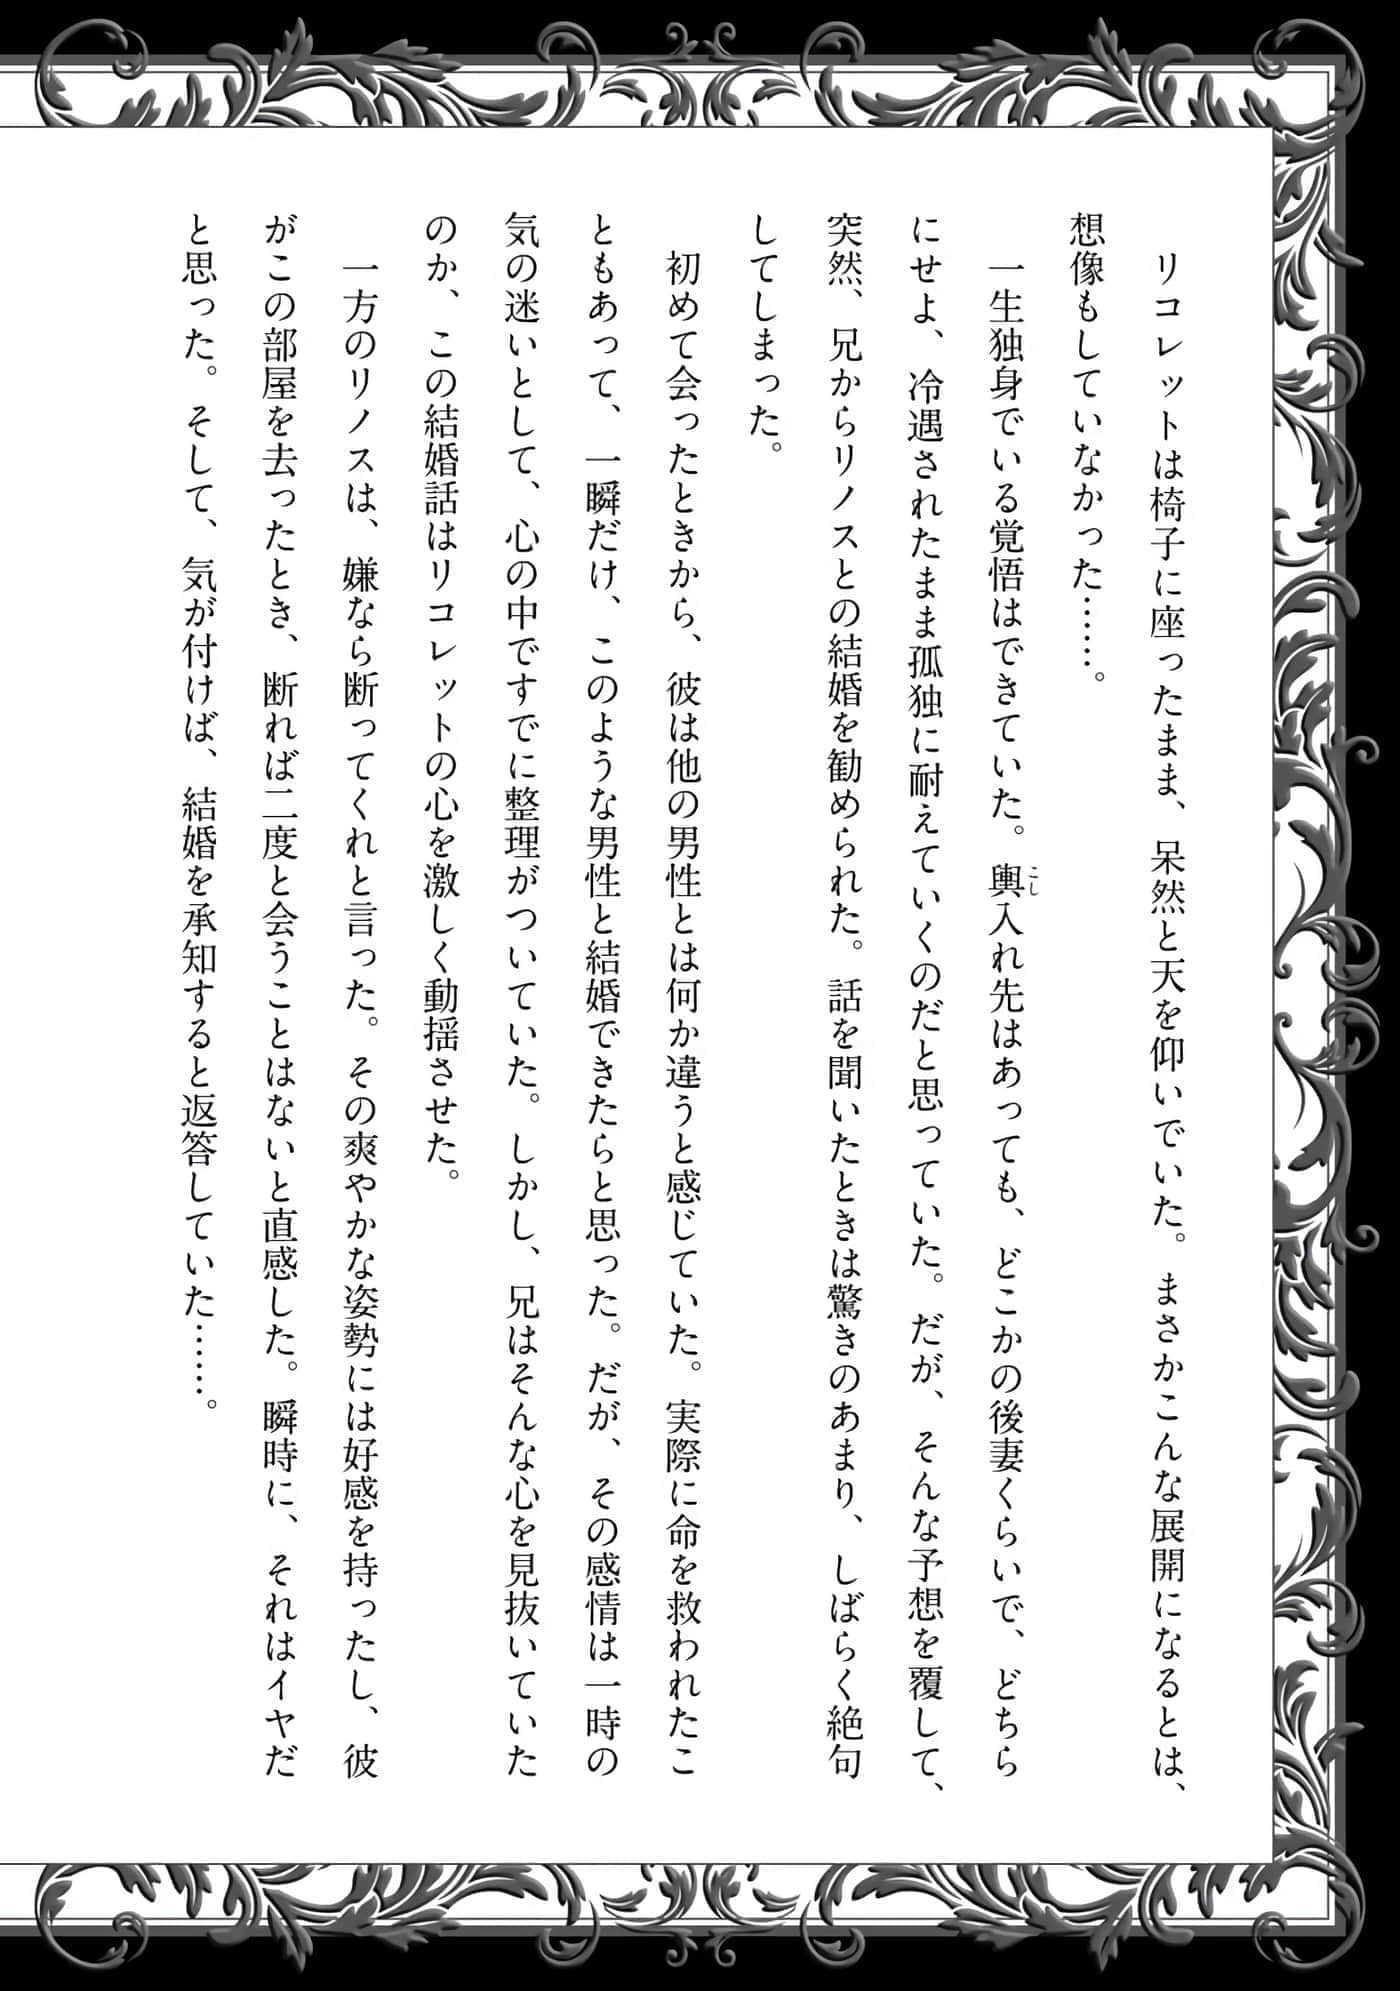 リコレットは椅子に座ったまま、呆然と天を仰いでいた。まさかこんな展開になるとは、
想像もしていなかった……。
一生独身でいる覚悟はできていた。輿入れ先はあっても、どこかの後妻くらいで、どちら
こし
にせよ、冷遇されたまま孤独に耐えていくのだと思っていた。だが、そんな予想を覆して、
突然、兄からリノスとの結婚を勧められた。話を聞いたときは驚きのあまり、しばらく絶句
してしまった。
初めて会ったときから、彼は他の男性とは何か違うと感じていた。実際に命を救われたこ
ともあって、一瞬だけ、このような男性と結婚できたらと思った。だが、その感情は一時の
気の迷いとして、心の中ですでに整理がついていた。しかし、兄はそんな心を見抜いていた
のか、この結婚話はリコレットの心を激しく動揺させた。
一方のリノスは、嫌なら断ってくれと言った。その爽やかな姿勢には好感を持ったし、彼
がこの部屋を去ったとき、断れば二度と会うことはないと直感した。瞬時に、それはイヤだ
と思った。そして、気が付けば、結婚を承知すると返答していた……。